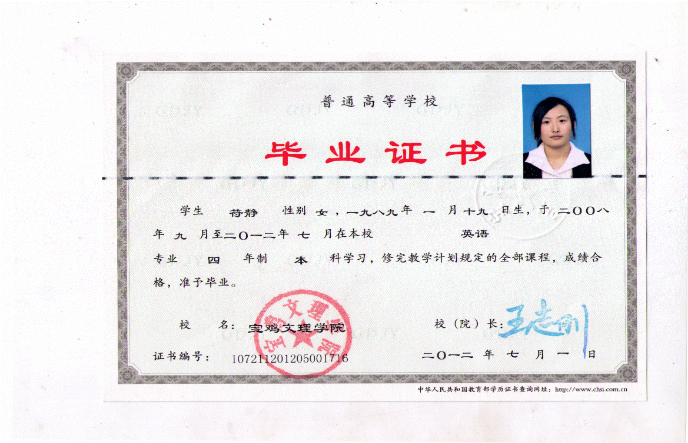 普通高等学校
毕业证书
学生 苻静 性别 女，一九八九年 一 月 十九 日生，于 二〇〇八
年 九 月至二〇一二年 七 月在本校 英语
专业 四 年制 本 科学习，修完教学计划规定的全部课程，成绩合
格，准予毕业。
校 名：宝鸡文理学院 校（院）长：王志刚
宝鸡文理学院
证书编号：107211201205001716 二〇一二年 七 月 一 日
中华人民共和国教育部学历证书查询网址：http://www.chsi.com.cn